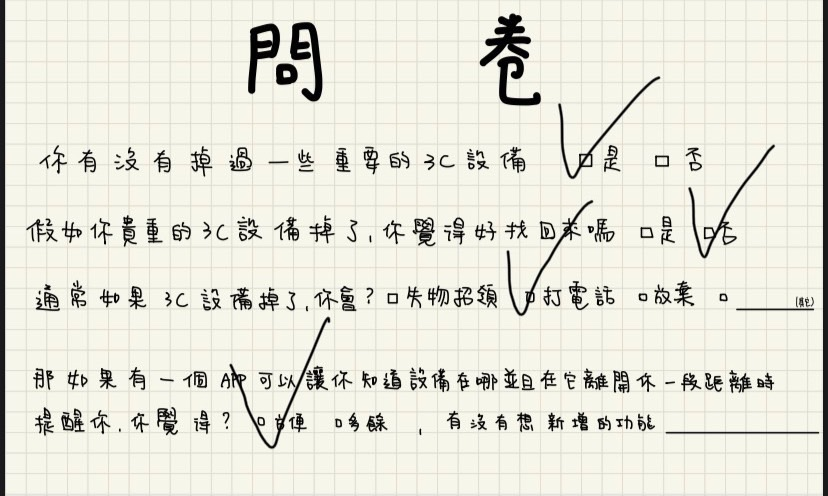 問 卷
你有沒有掉過一些重要的3C設備 □是 □否
假如你貴重的3C設備掉了,你覺得好找回來嗎 □是 □否
通常如果3C設備掉了,你會?□失物招領 □打電話 □放棄 □______(其它)
那如果有一個APP可以讓你知道設備在哪並且在它離開你一段距離時
提醒你,你覺得?□方便 □多餘 ,有沒有想新增的功能______